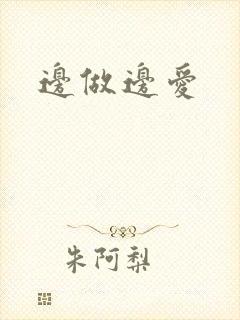 邊做邊愛
朱阿梨